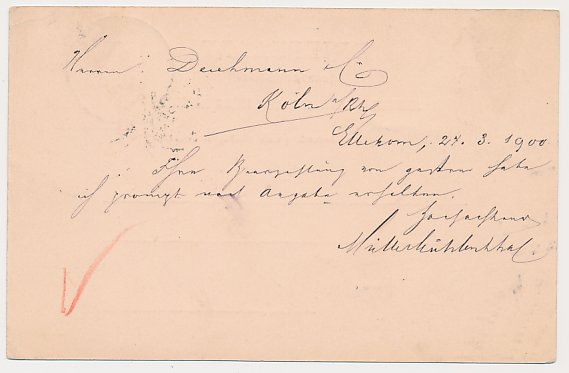 Herren Deichmann & Co
Köln a/Rh
Ellecom, 24. 3. 1900
Ihre von gestern habe
ich prompt nach Angabe erhalten.
Hochachtend